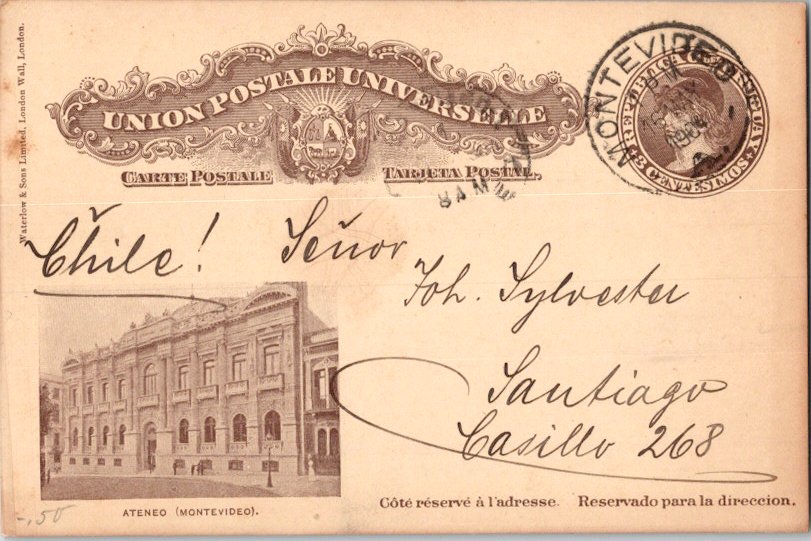 Waterlow & Sons Limited, London Wall, London.
UNION POSTALE UNIVERSELLE
CARTE POSTALE TARJETA POSTAL.
REPUBLICA
3 CENTESIMOS
MONTEVIDEO
8 AM
Chile! Señor
Joh. Sylvester
Santiago
Casillo 268
ATENEO (MONTEVIDEO).
-,50
Côté réservé à l'adresse. Reservado para la direccion.